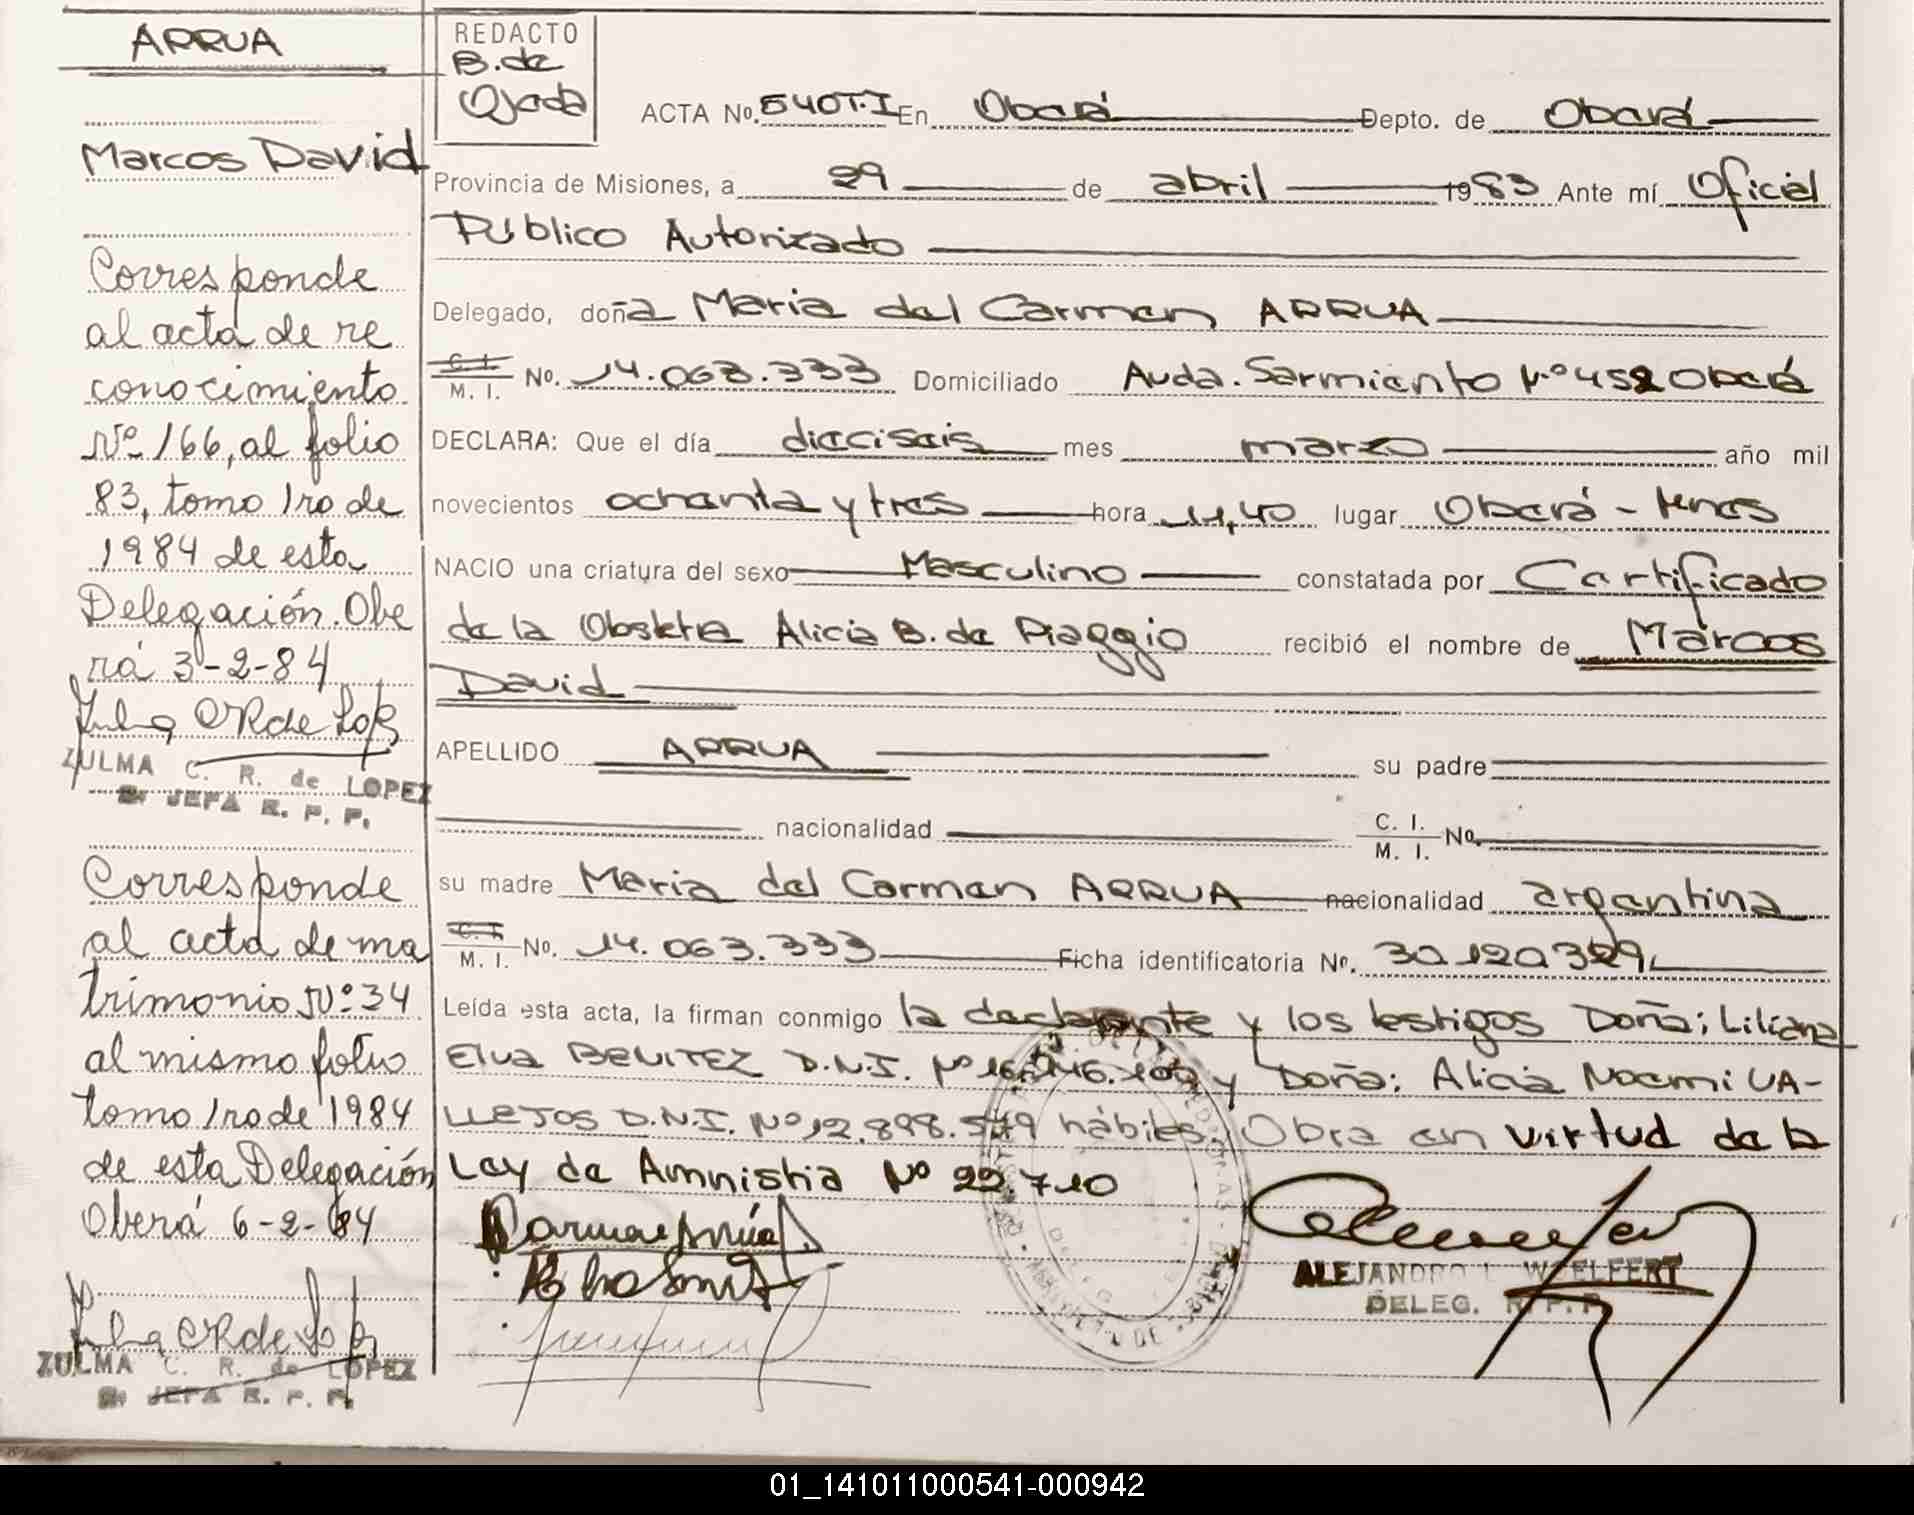 ARRUA
Marcos David
Corresponde
al acta de re
conocimiento
Nº 166, al folio
83, tomo 1ro de
1984 de esta
Delegación. Obe
rá 3-2-84
ZULMA C. R. de LOPEZ
JEFA R. P. P.
Corresponde
al acta de ma
trimonio Nº 34
al mismo folio
tomo 1ro de 1984
de esta Delegación
Oberá 6-2-84
ZULMA C. R. de LOPEZ
JEFA R. P. P.
REDACTO
B. de
Ojeda
ACTA No. 540 T.I En Oberá Depto. de Oberá
Provincia de Misiones, a 29 de abril 1983 Ante mí Oficial
Público Autorizado
Delegado, doña Maria del Carmen ARRUA
C. I. / M. I. No. 14.063.333 Domiciliado Avda. Sarmiento Nº 452 Oberá
DECLARA: Que el día dieciseis mes marzo año mil
novecientos ochenta y tres hora 11,40 lugar Oberá - Mnes
NACIO una criatura del sexo Masculino constatada por Certificado
de la Obstetra Alicia B. de Piaggio recibió el nombre de Marcos
David
APELLIDO ARRUA su padre
nacionalidad C. I. / M. I. No.
su madre Maria del Carmen ARRUA nacionalidad argentina
C. I. / M. I. No. 14.063.333 Ficha identificatoria No. 30.120.329
Leída esta acta, la firman conmigo la declarante y los testigos Doña; Liliana
Elva BENITEZ D.N.I. Nº y Doña; Alicia Noemi VA-
LLEJOS D.N.I. Nº 12.898.549 hábiles. Obra en virtud de la
Ley de Amnistia Nº 22.710
ALEJANDRO L. WOELFERT
DELEG. R. P. P.
01_141011000541-000942